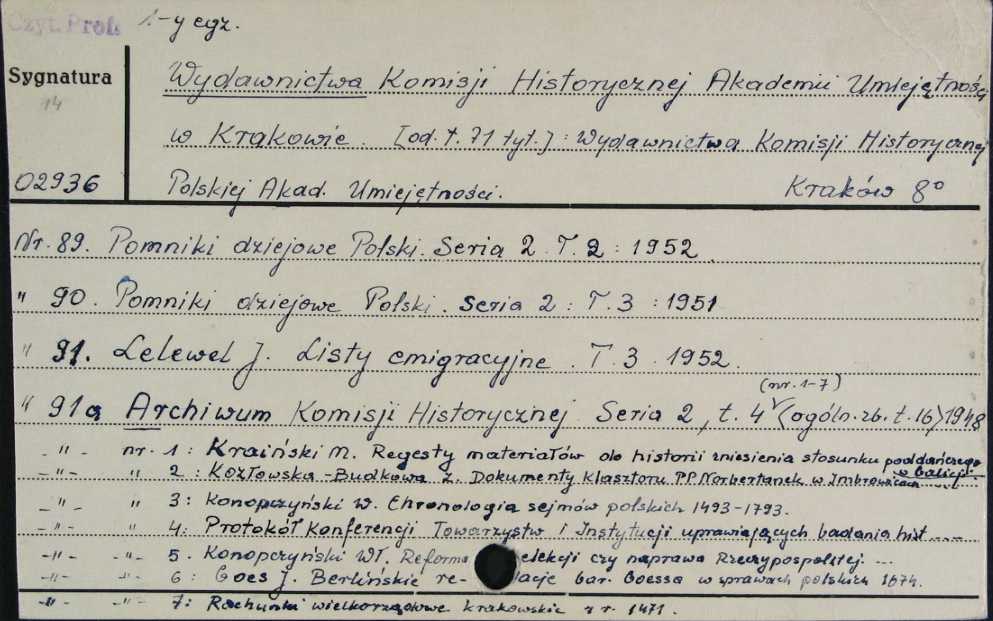 Czyt. Prof. 1.-y egz.
Sygnatura
14
02936
Wydawnictwa Komisji Historycznej Akademii Umiejętności
w Krakowie. [od. t. 71 tyt.] : Wydawnictwa Komisji Historycznej
Polskiej Akad. Umiejętności. Kraków 8°
Nr. 89. Pomniki dziejowe Polski. Seria 2. T. 2 : 1952
" 90. Pomniki dziejowe Polski. Seria 2 : T. 3 : 1951
" 91. Lelewel J. Listy emigracyjne T. 3. 1952.
(nr. 1-7)
" 91a Archiwum Komisji Historycznej. Seria 2, t. 4 (ogóln. zb. t. 16) 1948
- " - nr. 1: Kraiński M. Regesty materiałów do historii zniesienia stosunku poddańczego
w Galicji.
- " - " 2: Kozłowska-Budkowa Z. Dokumenty klasztoru PP Norbertanek w Imbramowicach ...
- " - " 3: Konopczyński W. Chronologia sejmów polskich 1493-1793.
- " - " 4: Protokół Konferencji Towarzystw i Instytucji uprawiających badania hist. ....
- " - - " - 5. Konopczyński Wł. Reforma elekcji czy naprawa Rzeczypospolitej. ...
- " - - " - 6: Goes J. Berlińskie re- lacje bar. Goessa w sprawach polskich 1674.
- " - - " - 7: Rachunki wielkorządowe krakowskie z r. 1471.